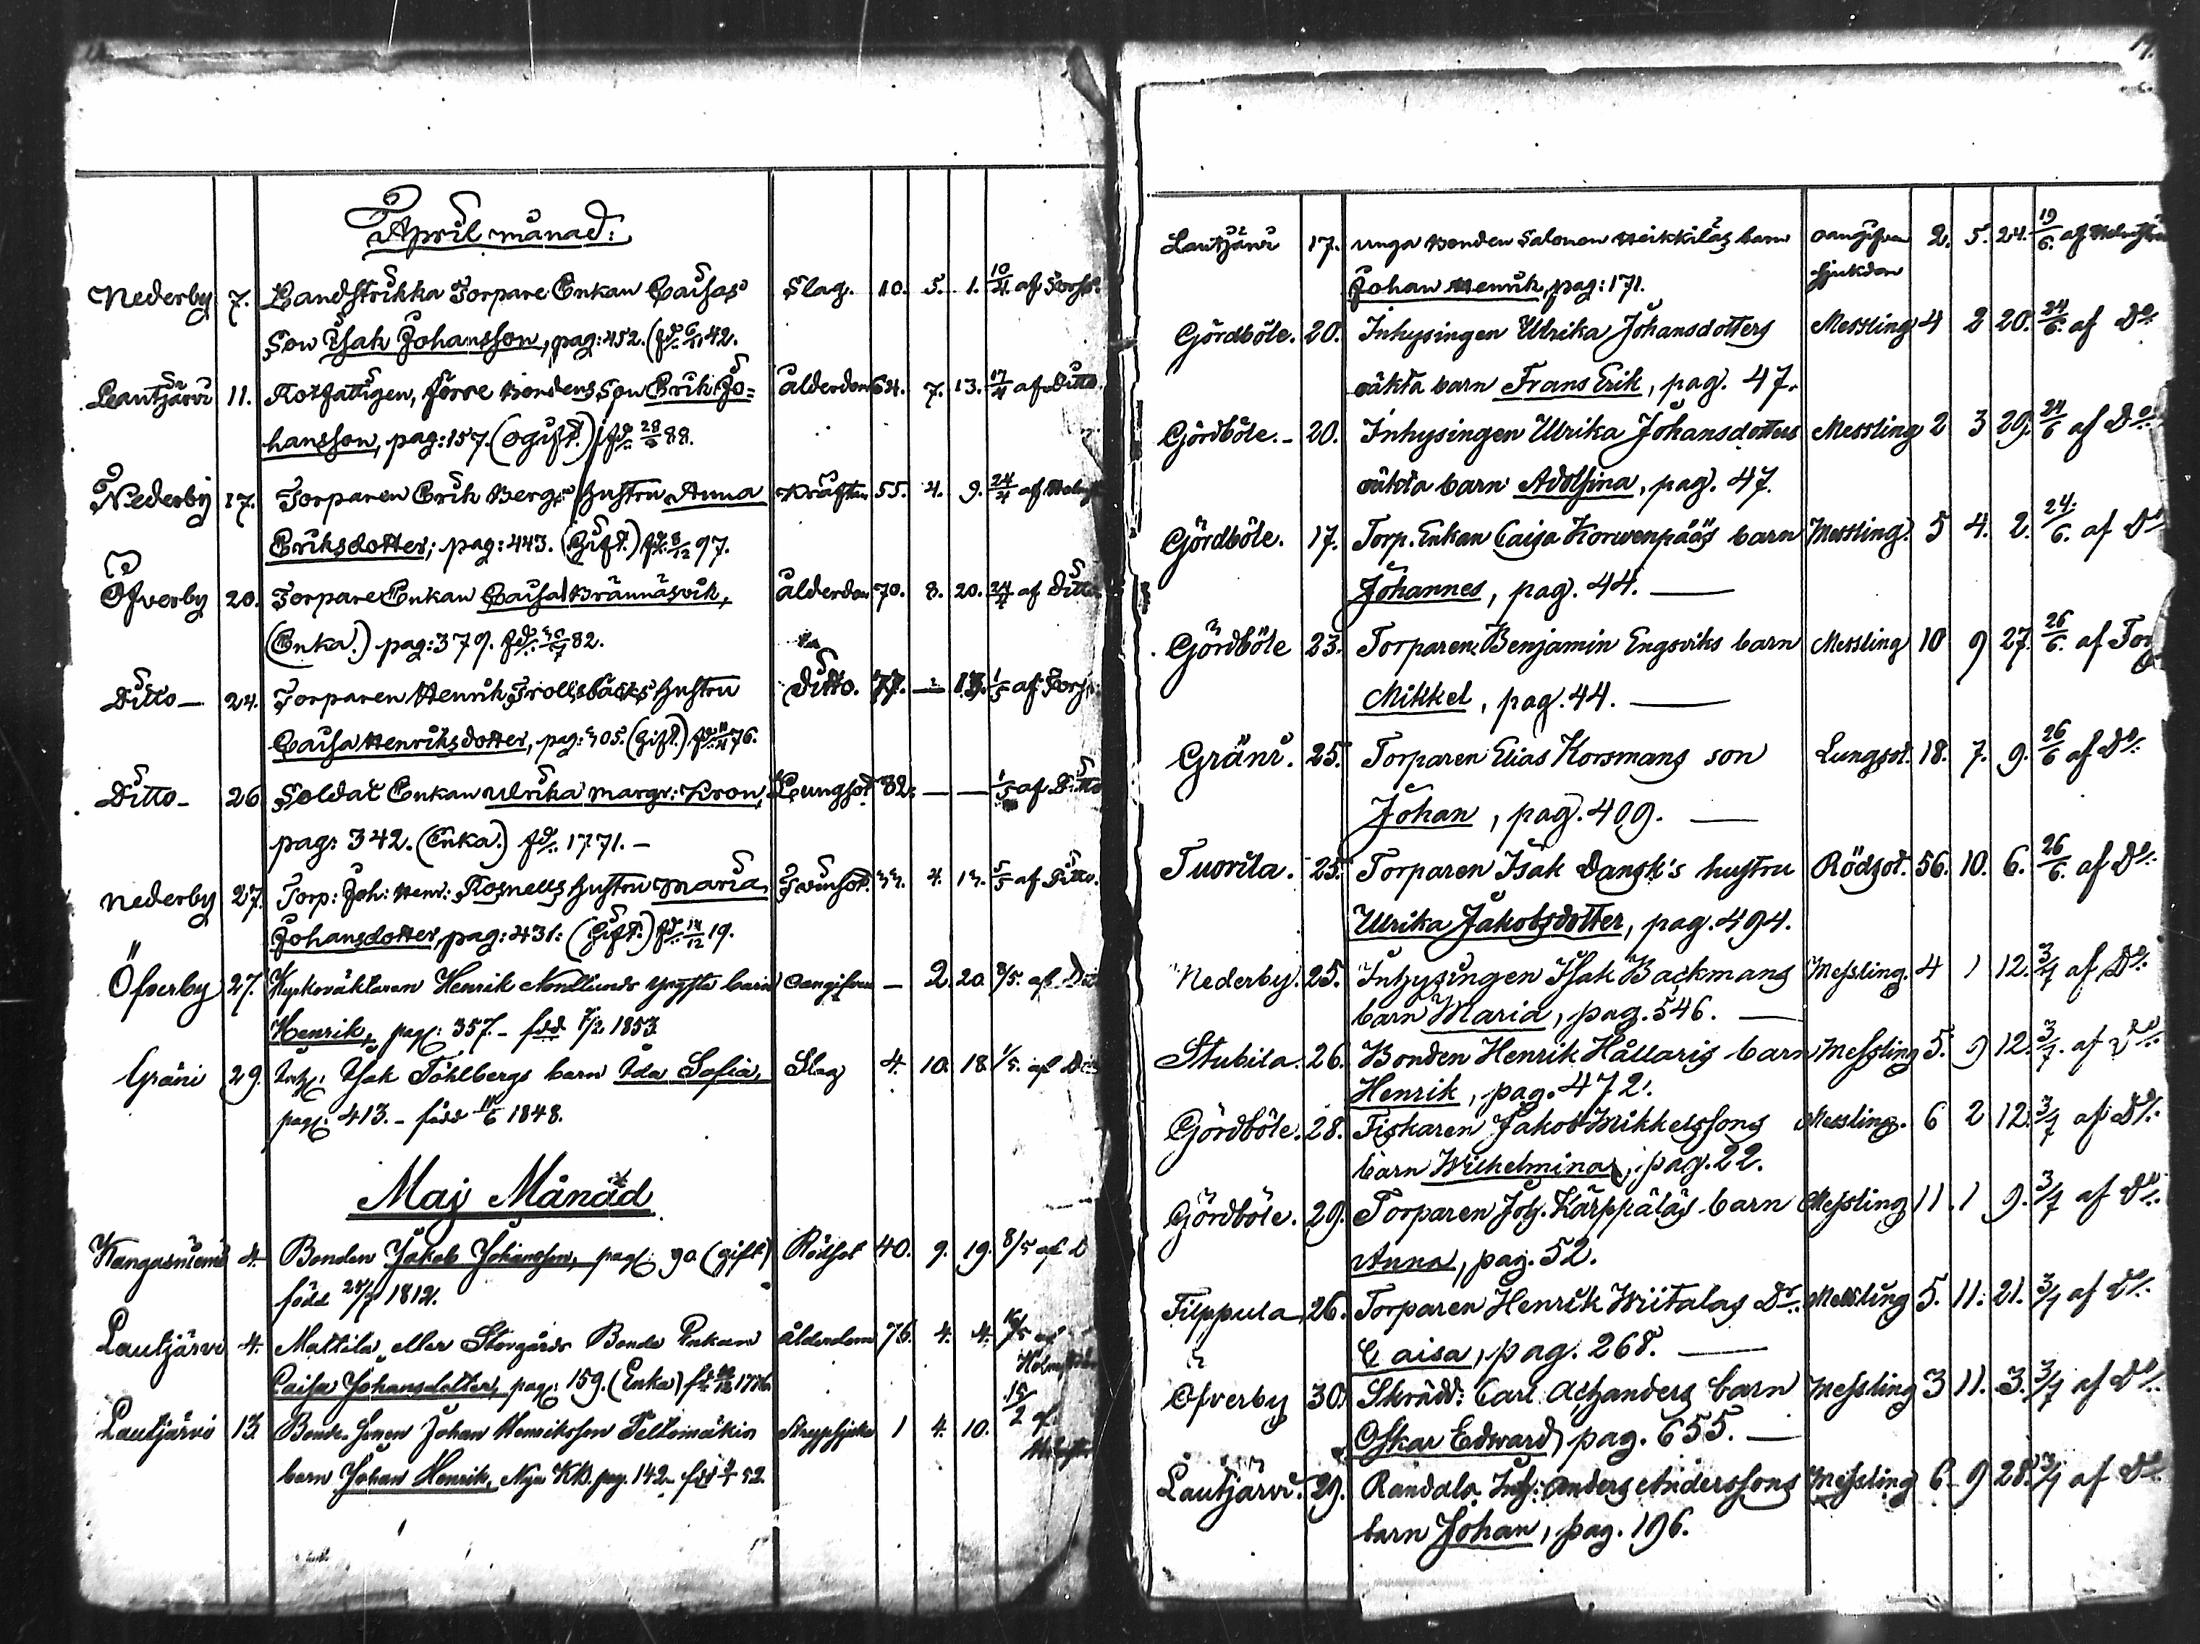 April månad:
Nederby 7. Landstrikka Torpare Enkan Caisas Slag. 10. 5. 1. 10/4 af Forss.
Son Isak Johansson, pag: 452. (fdd 42.
Lautjärvi 11. Rotfattigen, förre Bondens Son Erik Jo= ålderdom 64. 7. 13. 17/4 af Ditto.
hansson, pag: 157. (ogift.) fdd 28 88.
Nederby 17. Torparen Erik Bergs hustru Anna Kräftan 55. 4. 9. 24/4 af
Eriksdotter; pag: 443. (Gift.) fdd 8/12 97.
Öfverby 20. Torpare Enkan Caisa Brännäsvik, ålderdom 70. 8. 20. 24/4 af Ditto
(Enka.) pag: 379. fdd 82.
Ditto — 24. Torparen Henrik Trollsbäcks hustru Ditto. 77. — 13. 1/5 af Forss.
Caisa Henriksdotter, pag: 305. (Gift.) fdd 76.
Ditto — 26 Soldat Enkan Ulrika Margr: Kron, Lungsot 82. — — 1/5 af Ditto
pag: 342. (Enka.) fdd. 1771. —
Nederby 27. Torp: Joh: Henr: Rosnells hustru Maria Tvinsot. 33. 4. 13. 5/5 af Ditto.
Johansdotter, pag: 431: (Gift.) fdd 14/12 19.
Öfverby 27. Kyrkoväktaren Henrik Nordlunds yngsta barn Oangifven — 2. 20. 8/5. af Dit
Henrik, pag: 357. — född 7/2 1853.
Gräni 29. Inh: Isak Töhlbergs barn Ida Sofia, Slag 4. 10. 18. 1/5. af Dit
pag: 413. — född 11/6 1848.
Maj Månad
Kangasniemi 4. Bonden Jakob Johansson, pag: 90 (gift) Rödsot 40. 9. 19. 8/5 af D
född 1812.
Lautjärvi 4. Mattila eller Storgårds Bonde Enkan ålderdom 76. 4. 4. af
Caisa Johansdotter, pag: 159. (Enka) fdd 1776. Holmström
Lautjärvi 13. Bonde Sonen Johan Henriksson Peltomäkis Strypsjuka 1 4. 10. 15/2 af
barn Johan Henrik, Nya KB. pag. 142. född 52.
Lautjärvi 17. unga Bonden Salomon Heikkiläs barn oangifven 2. 5. 24. 19/6. af Holmström
Johan Henrik, pag: 171. sjukdom
Gördböle. 20. Inhysingen Ulrika Johansdotters Messling 4 2 20. 24/6. af Do.
oäkta barn Frans Erik, pag. 47.
Gördböle. - 20. Inhysingen Ulrika Johansdotters Messling 2 3 29. 24/6 af Do.
oäkta barn Adolfina, pag. 47.
Gördböle. 17. Torp. Enkan Caisa Korwenpääs barn Messling. 5 4. 2. 24/6. af Do
Johannes, pag. 44. —
Gördböle 23. Torparen Benjamin Engsviks barn Messling 10 9 27. 26/6. af For
Mikkel, pag. 44. —
Gräni. 25. Torparen Elias Korsmans son Lungsot. 18. 7. 9. 26/6 af Do.
Johan, pag. 409. —
Tuorila. 25. Torparen Isak Dansk's hustru Rödsot. 56. 10. 6. 26/6. af Do.
Ulrika Jakobsdotter, pag. 494.
Nederby. 25. Inhysingen Isak Backmans Messling. 4 1 12. 3/7 af Do.
barn Maria, pag. 546. —
Stubila. 26. Bonden Henrik Hållaris barn Messling 5. 9 12. 3/7. af Do.
Henrik, pag. 472.
Gördböle. 28. Fiskaren Jakob Mikkelssons Messling. 6 2 12. 3/7 af Do.
barn Wilhelmina, pag. 22.
Gördböle. 29. Torparen Joh. Kärppäläs barn Messling 11. 1 9. 3/7 af Do.
Anna, pag. 52.
Filppula 26. Torparen Henrik Wiitalas Dr. Messling 5. 11. 21. 3/7 af Do.
Caisa, pag. 268. —
Öfverby 30. Skrädd: Carl Achanders barn Messling 3 11. 3. 3/7 af Do.
Oskar Edward, pag. 655. —
Lautjärvi. 29. Randala Inh: Anders Anderssons Messling 6 9 28. 3/7 af Do
barn Johan, pag. 196.